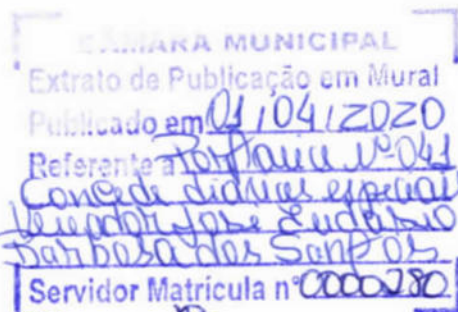 CÂMARA MUNICIPAL
Extrato de Publicação em Mural
Publicado em 01/04/2020
Referente a Portaria Nº 041
Concede diárias especiais
Vereador Jose Eudósio
Barbosa dos Santos
Servidor Matrícula nº 0000280